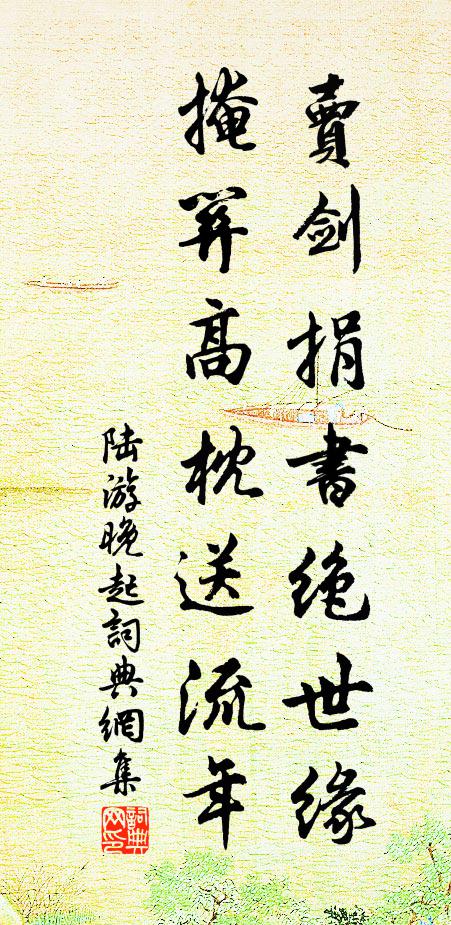 賣劍捐書絶世緣
掩荓高枕送流年
陆游晚起詞典網集
詞典网印